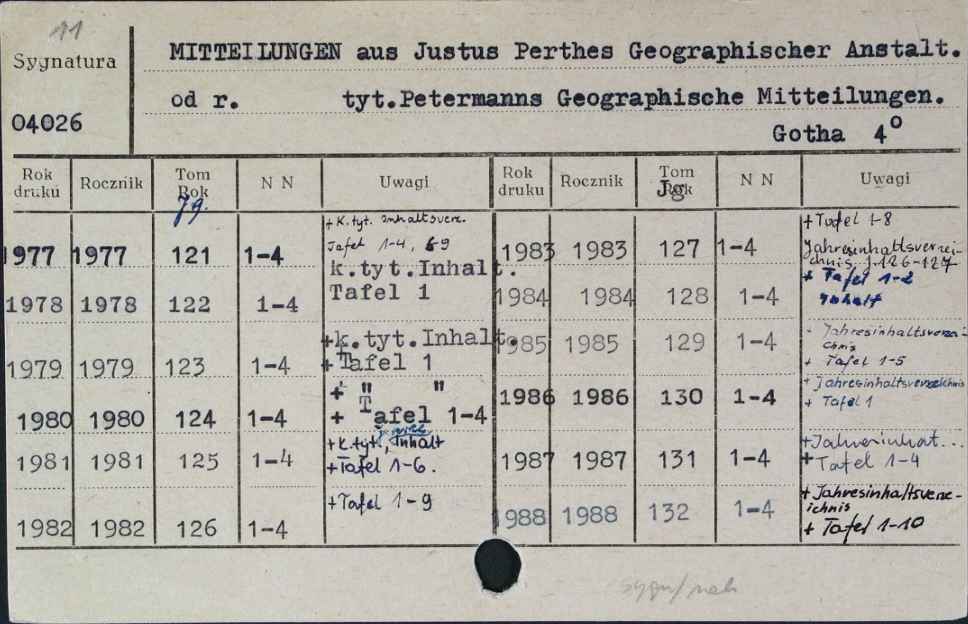 11
Sygnatura
04026
MITTEILUNGEN aus Justus Perthes Geographischer Anstalt.
od r. tyt.Petermanns Geographische Mitteilungen.
Gotha 4°
Rok druku Rocznik Tom Rok Jg. N N Uwagi
1977 1977 121 1-4 + K.tyt. Inhaltsverz.
Tafel 1-4, 69
k.tyt.Inhalt.
1978 1978 122 1-4 Tafel 1
+k.tyt.Inhalt.
1979 1979 123 1-4 + Tafel 1
+ " "
1980 1980 124 1-4 + Tafel 1-4
+K.tyt., Inhalt
1981 1981 125 1-4 +Tafel 1-6.
+Tafel 1-9
1982 1982 126 1-4
Rok druku Rocznik Tom Rok Jg N N Uwagi
+Tafel 1-8
1983 1983 127 1-4 Jahresinhaltsverzei-
chnis, J.126-127
+ Tafel 1-2
1984 1984 128 1-4 Inhalt
- Jahresinhaltsverzei-
1985 1985 129 1-4 chnis
+ Tafel 1-5
+ Jahresinhaltsverzeichnis
1986 1986 130 1-4 + Tafel 1
+Jahresinhat...
1987 1987 131 1-4 + Tafel 1-4
+ Jahresinhaltsverze-
1988 1988 132 1-4 ichnis
+ Tafel 1-10